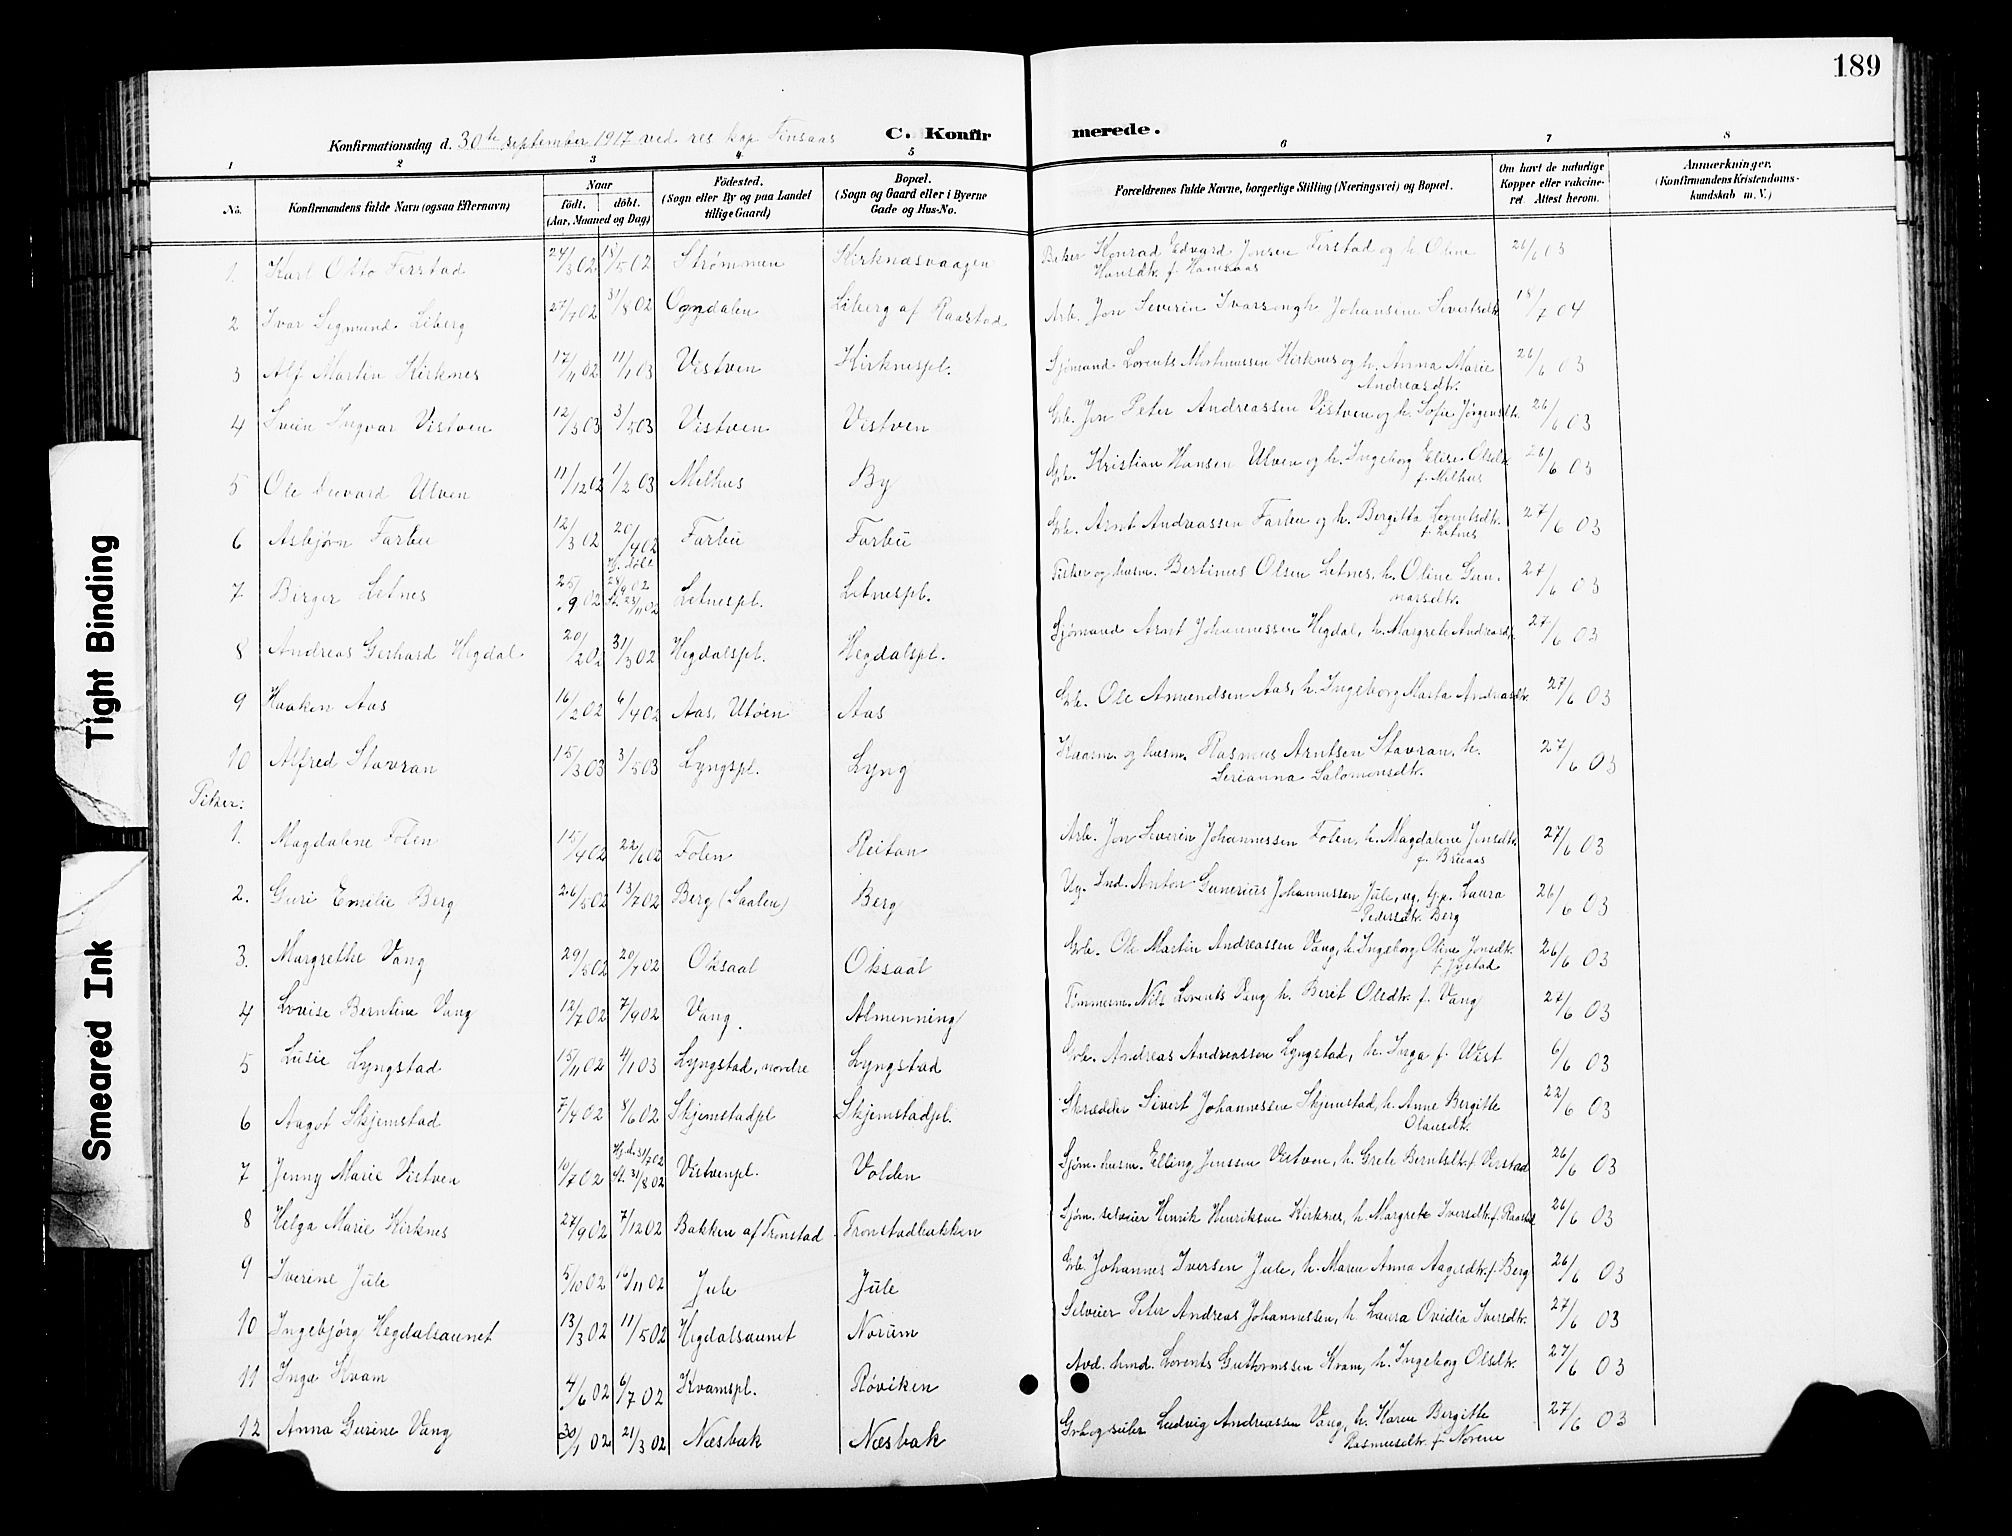 189
Konfirmationsdag d. 30te september 1917 ved res kap Finsaas
C. Konfirmerede.
1 2 3 4 5 6 7 8
No. Konfirmandens fulde Navn (ogsaa Efternavn) Naar født. døbt. (Aar, Maaned og Dag) Fødested. (Sogn eller By og paa Landet tillige Gaard) Bopæl. (Sogn og Gaard eller i Byerne Gade og Hus-No.) Forældrenes fulde Navne, borgerlige Stilling (Næringsvei) og Bopæl. Om havt de naturlige Kopper eller vakcineret. Attest herom. Anmærkninger. (Konfirmandens Kristendomskundskab m. V.)
1. Karl Otto Ferstad 24/3 02 18/5 02 Strømmen Kirknæsvaagen Konrad Edvard Jensen Ferstad og h. Oline Hansdtr. f. Hansaas 26/6 03
2 Ivar Sigmund Liberg 27/7 02 31/8 02 Ogndalen Liberg af Raastad Arb. Jon Severin Ivarsen og h. Johansine Sivertsdtr. 18/7 04
3 Alf Martin Kirknes 17/11 02 11/1 03 Vistven Kirknespl. Sjømand Lorents Mortinussen Kirknes og h. Anna Marie Andreasdtr. 26/6 03
4 Svein Ingvar Vistven 12/3 03 3/5 03 Vistven Vistven Grb. Jon Peter Andreassen Vistven og h. Sofie Jørgensdtr. 26/6 03
5 Ole Edvard Ulven 11/12 02 1/2 03 Melhus By Grb. Kristian Hansen Ulven og h. Ingeborg Elise Olsdtr. f. Melhus 26/6 03
6 Asbjørn Farbu 12/3 02 20/4 02 Farbu Farbu Grb. Arnt Andreassen Farbu og h. Bergitta Lorentsdtr. f. Letnes 27/6 03
7 Birger Letnes 25/9 02 Hj. døbt 28/9 02 St. 23/11 02 Letnespl. Letnespl. Fisker og husm. Bertinus Olsen Letnes, h. Oline Gunnarsdtr. 27/6 03
8 Andreas Gerhard Hegdal 20/2 02 31/3 02 Hegdalspl. Hegdalspl. Sjømand Arnt Johannessen Hegdal, h. Margrete Andreasdtr. 27/6 03
9 Haaken Aas 16/2 02 6/4 02 Aas, Utøen Aas Grb. Ole Amundsen Aas, h. Ingeborg Marta Andreasdtr. 27/6 03
10 Alfred Stavran 15/3 03 3/5 03 Lyngspl. Lyng og husm. Rasmus Arntsen Stavran, h. Serianna Salomonsdtr. 27/6 03
Piker:
1. Magdalene Folen 15/4 02 22/6 02 Folen Reitan Arb. Jon Severin Johannessen Folen, h. Magdalene Jensdtr. 27/6 03
2. Guri Emilie Berg 26/5 02 13/7 02 Berg (Saalen) Berg Ug. Ind. Anton Gunerius Johannessen Jule, ug. Gp. Laura Pedersdtr. Berg 26/6 03
3. Margrethe Vang 29/5 02 20/7 02 Oksaal Oksaal Grb. Ole Martin Andreassen Vang, h. Ingeborg Oline Jonsdtr. f. Jystad 26/6 03
4 Lovise Berntine Vang 12/7 02 7/9 02 Vang. Almenning Tømmerm. Nils Lorents Peng h. Berit Olsdtr. f. Vang 27/6 03
5 Lusie Lyngstad 15/11 02 4/1 03 Lyngstad, nordre Lyngstad Grb. Andreas Andreassen Lyngstad, h. Inga f. Wist 6/6 03
6 Aagot Skjemstad 7/4 02 8/6 02 Skjemstadpl Skjemstadpl. Skrædder Sivert Johannessen Skjemstad, h. Anne Bergitte Olausdtr. 22/6 03
7 Jenny Marie Vistven 10/7 02 Hj.d. 31/7 02 St. 31/8 02 Vistvenpl. Volden Sjøm. husm. Elling Jenssen Vistven, h. Grete Berntsdtr. f. Verstad 26/6 03
8 Helga Marie Kirknes 27/9 02 7/12 02 Bakken af Tronstad Tronstadbakken Sjøm. selveier Henrik Henriksen Kirknes, h. Margrete Iversdtr. f. Raastad 26/6 03
9 Iverine Jule 5/10 02 16/11 02 Jule Jule Grb. Johannes Iversen Jule, h. Maren Anna Aagesdtr. f. Berg 26/6 03
10 Ingebjørg Hegdalsaunet 13/3 02 11/5 02 Hegdalsaunet Norum Selveier Peter Andreas Johannessen, h. Laura Ovidia Iversdtr. 27/6 03
11 Inga Kvam 4/6 02 6/7 02 Kvamspl. Røviken Avd. hmd. Lorents Guttormssen Kvam, h. Ingeborg Olsdtr. 27/6 03
12 Anna Gurine Vang 30/1 02 21/3 02 Næsbak Næsbak Ludvig Andreassen Vang, h. Karen Bergitte Rasmusdtr. f. Norene 27/6 03
Tight Binding
Smeared Ink